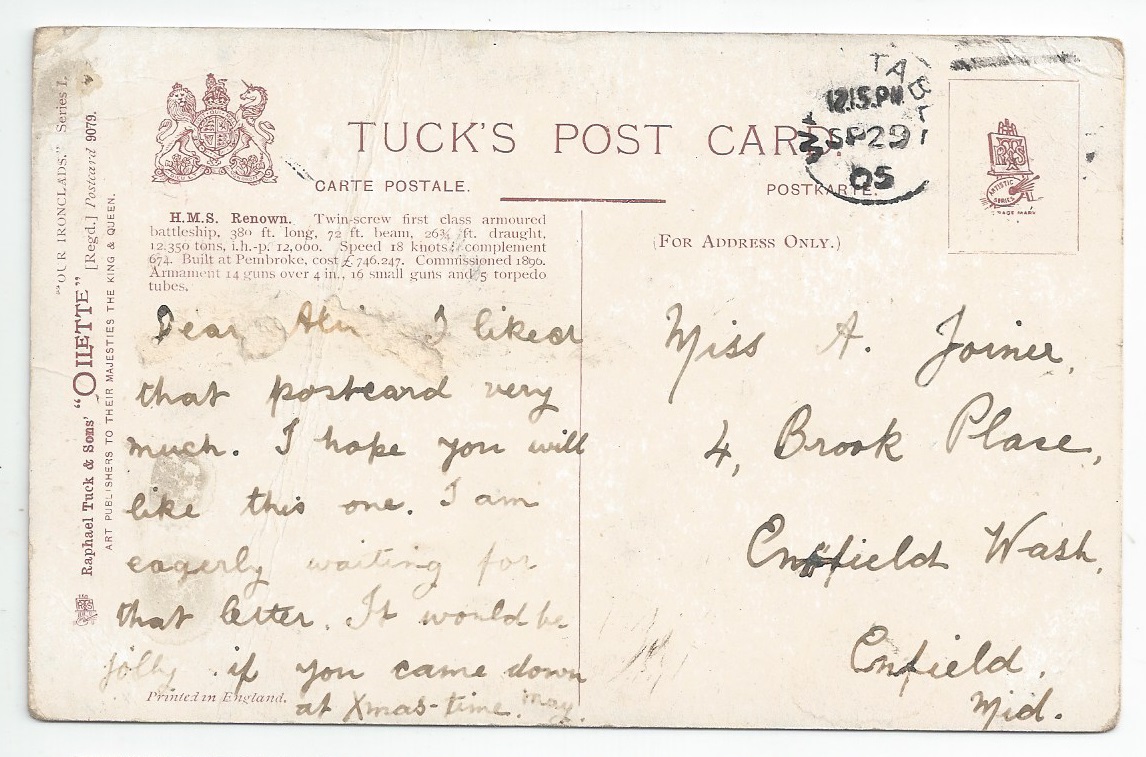 "OUR IRONCLADS." Series I.
Raphael Tuck & Sons' "OILETTE" [Regd.] Postcard 9079.
ART PUBLISHERS TO THEIR MAJESTIES THE KING & QUEEN.
TUCK'S POST CARD
CARTE POSTALE.
POSTKARTE.
(FOR ADDRESS ONLY.)
12.15.PM
SP 29
05
ARTISTIC
SERIES
TRADE MARK
H.M.S. Renown. Twin-screw first class armoured
battleship, 380 ft. long, 72 ft. beam, 26¾ ft. draught,
12,350 tons, i.h-p. 12,000. Speed 18 knots: complement
674. Built at Pembroke, cost £746,247. Commissioned 1890.
Armament 14 guns over 4 in., 16 small guns and 5 torpedo
tubes.
Dear I liked
that postcard very
much. I hope you will
like this one. I am
eagerly waiting for
that letter. It would be
jolly if you came down
at Xmas-time. May.
Printed in England.
Miss A. Joiner,
4, Brook Place,
Enfield Wash,
Enfield.
Mid.